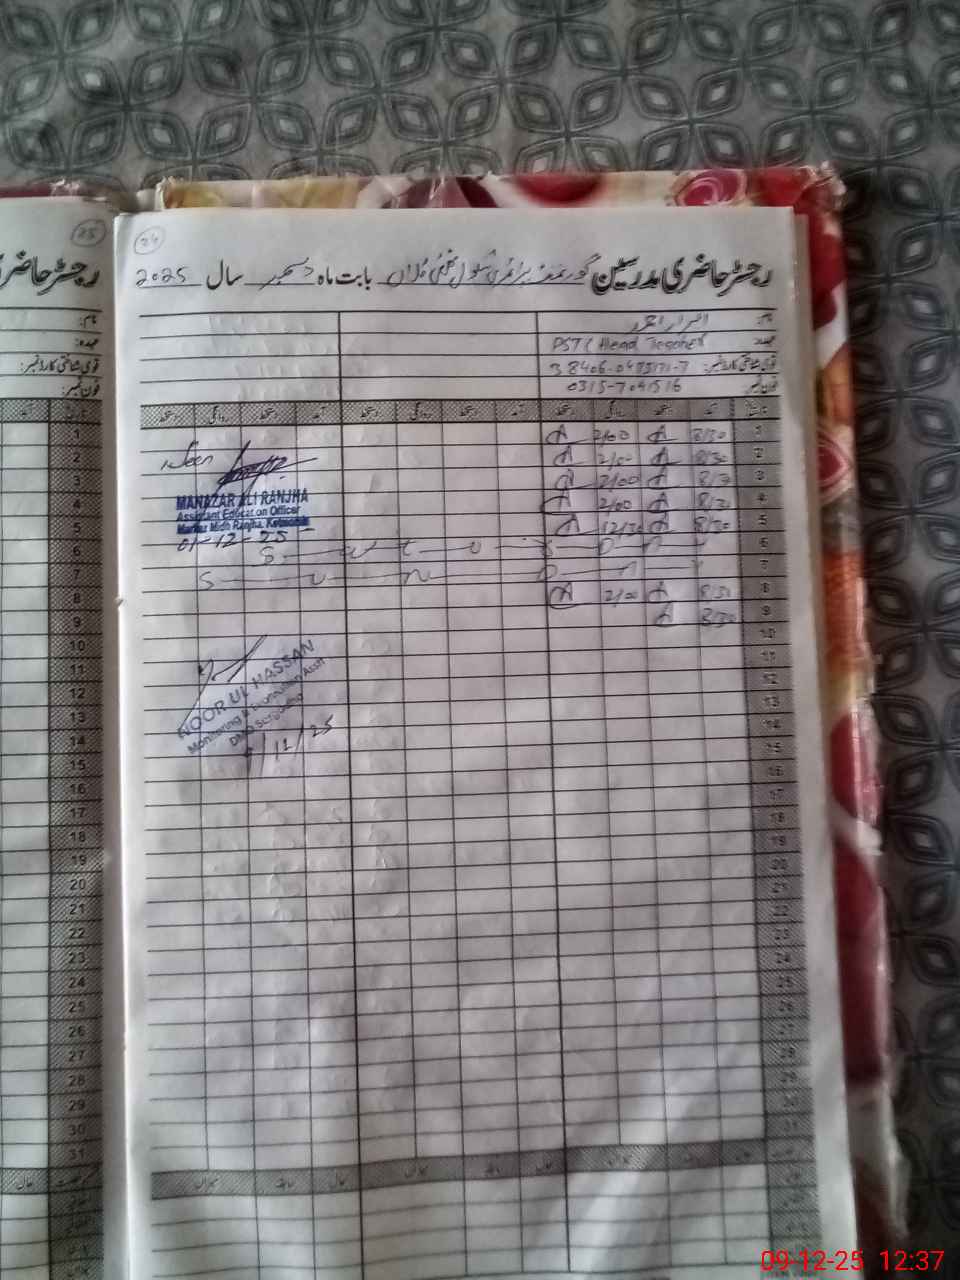 25
24
رجسٹر حاضری مدرسین گورنمنٹ پرائمری سکول
بابت ماہ دسمبر سال 2025
رجسٹر حاضری
نام:
اسرار احمد
نام:
عہدہ:
PST (Head Teacher
عہدہ:
قومی شناختی کارڈ نمبر:
قومی شناختی کارڈ نمبر:
فون نمبر:
0315-7041516
فون نمبر:
دستخط روانگی دستخط آمد دستخط روانگی دستخط آمد دستخط روانگی دستخط آمد تاریخ
1 8/30 2/00
2 8/30 2/00
3 8/30 2/00
4 8/30 2/00
5 8/30 12/30
6 S A T U R D A Y
7 S U N D A Y
8 8/30 2/00
9 8/30
10
11
12
13
14
15
16
17
18
19
20
21
22
23
24
25
26
27
28
29
30
31
Seen
MANAZAR ALI RANJHA
Assistant Education Officer
Markaz Midh Ranjha, Kotmomin
01-12-25
NOOR UL HASSAN
Monitoring & Evaluation Asstt
DMO Sargodha
/12/25
1
2
3
4
5
6
7
8
9
10
11
12
13
14
15
16
17
18
19
20
21
22
23
24
25
26
27
28
29
30
31
میزان سابقہ حال میزان سابقہ حال میزان سابقہ حال
09-12-25 12:37